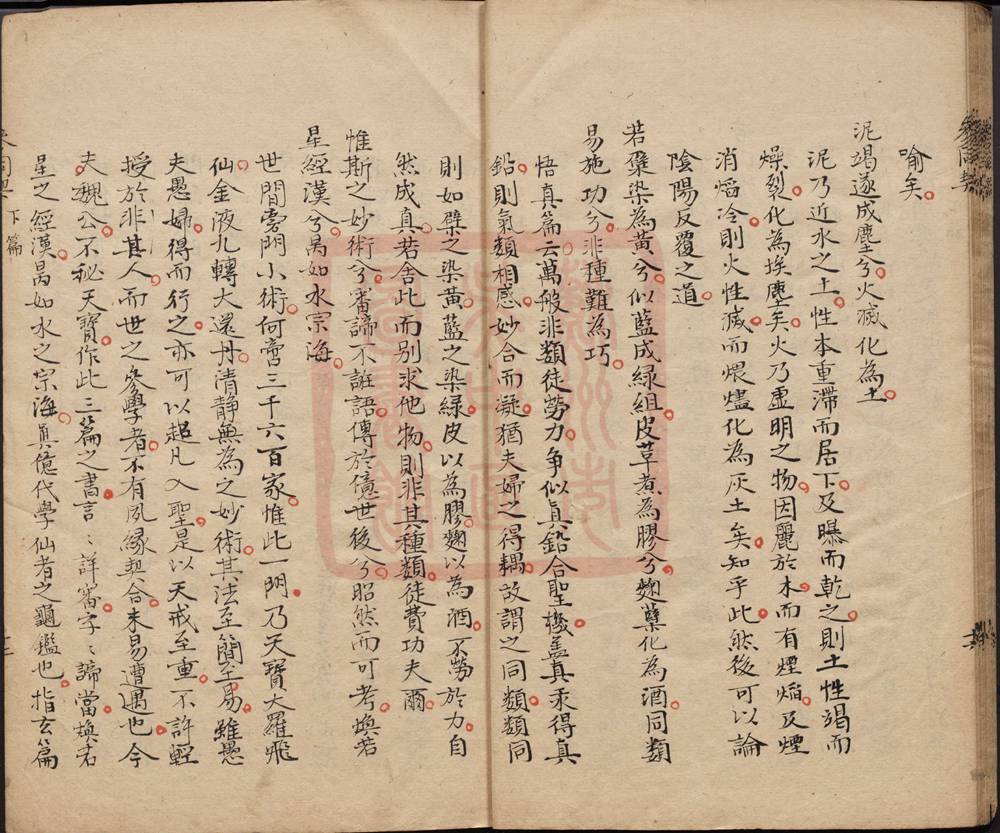 喻矣
泥竭遂成塵兮火滅化為土
泥乃近水之土性本重滯而居下及曝而乾之則土性竭而
燥裂化為埃塵矣火乃虛明之物因麗於木而有煙焰及煙
消焰冷則火性滅而煨燼化為灰土矣知乎此然後可以論
陰陽反覆之道
若蘗染為黃兮似藍成綠組皮革煮為膠兮麴蘗化為酒同類
易施功兮非種難為巧
悟真篇云萬般非類徒勞力争似眞鉛合聖機蓋真汞得真
鉛則氣類相感妙合而凝猶夫婦之得耦故謂之同類類同
則如蘗之染黃藍之染綠皮以為膠麴以為酒不勞於力自
然成真若舍此而別求他物則非其種類徒費功夫爾
惟斯之妙術兮審諦不誑語傳於億世後兮昭然而可考煥若
星經漢兮昺如水宗海
世間旁門小術何啻三千六百家惟此一門乃天寶大羅飛
仙金液九轉大還丹清静無為之妙術其法至簡至易雖愚
夫愚婦得而行之亦可以超凡入聖是以天戒至重不許輕
授於非其人而世之叅學者不有夙緣契合未易遭遇也今
夫魏公不秘天寶作此三篇之書言〻詳審字〻諦當煥若
星之經漢昺如水之宗海眞億代學仙者之龜鑑也指玄篇
下篇